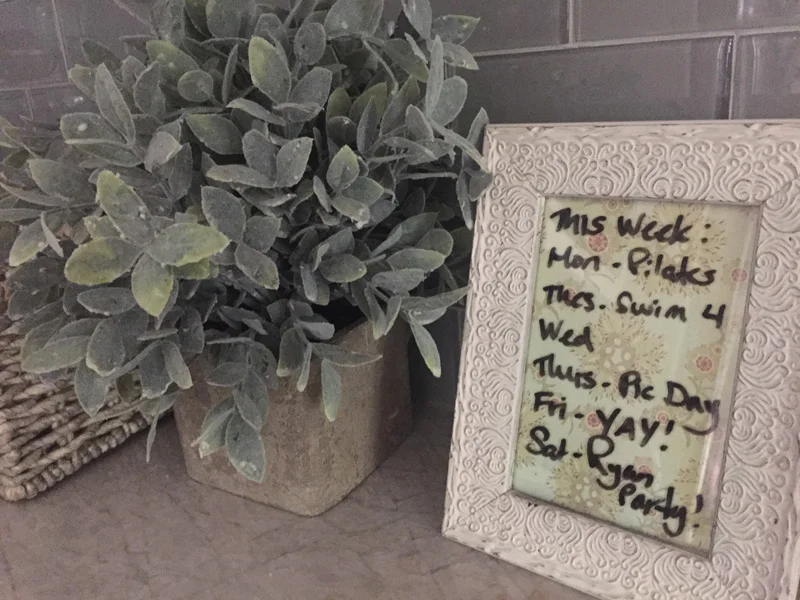 This Week:
Mon - Pilates
Tues. Swim 4
Wed
Thurs - Pic Day
Fri - YAY!
Sat - Ryan
Party!